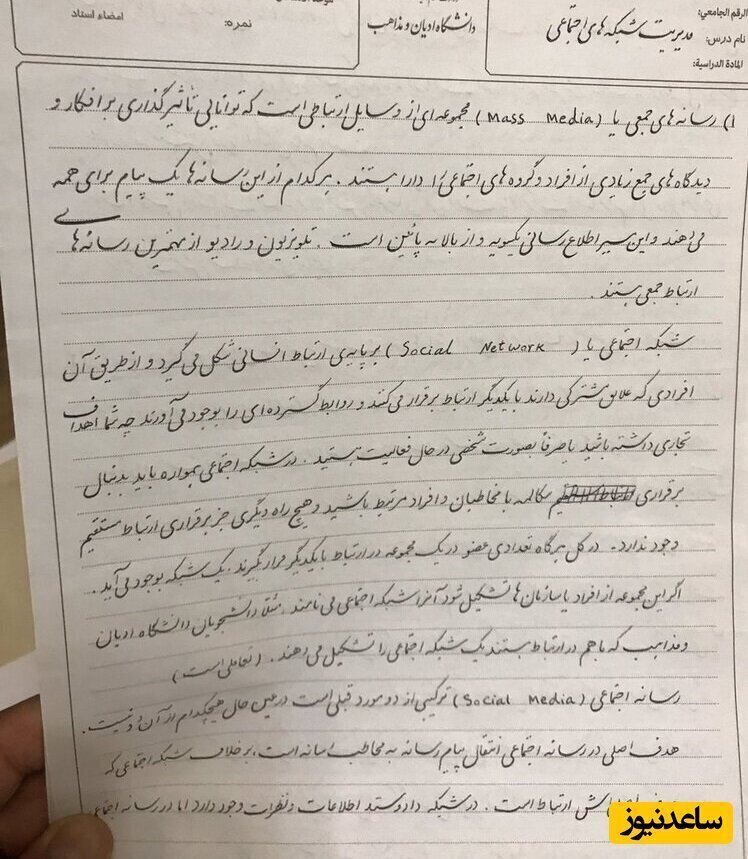 الرقم الجامعي:
نام درس: مدیریت شبکه های اجتماعی
المادة الدراسية:
دانشگاه ادیان و مذاهب
نمره:
امضاء استاد
۱) رسانه های جمعی یا (Mass Media) مجموعه ای از وسایل ارتباطی است که توانایی تأثیرگذاری بر افکار و
دیدگاه های جمع زیادی از افراد و گروه های اجتماعی را دارا هستند. هرکدام از این رسانه ها یک پیام برای همه
می دهند و این سیر اطلاع رسانی یکسویه و از بالا به پائین است. تلویزیون و رادیو از مهمترین رسانه های
ارتباط جمعی هستند.
شبکه اجتماعی یا (Social Network) بر پایه ی ارتباط انسانی شکل می گیرد و از طریق آن
افرادی که علایق مشترکی دارند با یکدیگر ارتباط برقرار می کنند و روابط گسترده ای را بوجود می آورند چه شما اهداف
تجاری داشته باشید یا صرفاً بصورت شخصی در حال فعالیت هستید. در شبکه اجتماعی همواره باید بدنبال
برقراری مکالمه با مخاطبان و افراد مرتبط باشید و هیچ راه دیگری جز برقراری ارتباط مستقیم
وجود ندارد. در کل هرگاه تعدادی عضو در یک مجموعه در ارتباط با یکدیگر قرار گیرند، یک شبکه بوجود می آید.
اگر این مجموعه از افراد یا سازمان ها تشکیل شود آنرا شبکه اجتماعی می نامند. مثلاً دانشجویان دانشگاه ادیان
و مذاهب که با هم در ارتباط هستند یک شبکه اجتماعی را تشکیل می دهند. (تعاملی است)
رسانه اجتماعی (Social Media) ترکیبی از دو مورد قبلی است در عین حال هیچکدام از آن دو نیست.
هدف اصلی در رسانه اجتماعی انتقال پیام رسانه به مخاطب است، بر خلاف شبکه اجتماعی که
ارتباط است. در شبکه داد و ستد اطلاعات و نظرات وجود دارد اما در رسانه
ساعدنیوز